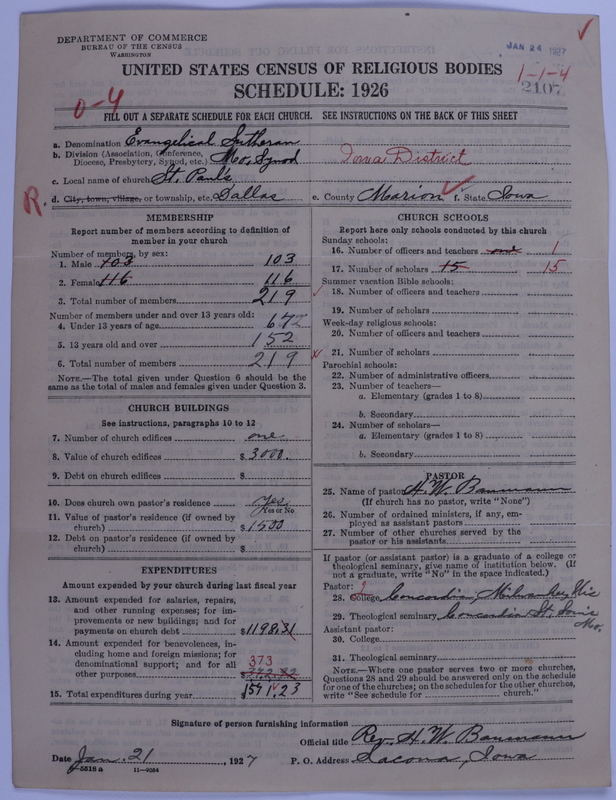 DEPARTMENT OF COMMERCE
BUREAU OF THE CENSUS
WASHINGTON
JAN 24 1927
UNITED STATES CENSUS OF RELIGIOUS BODIES
1-1-4
SCHEDULE: 1926
2107
0-4
FILL OUT A SEPARATE SCHEDULE FOR EACH CHURCH. SEE INSTRUCTIONS ON THE BACK OF THIS SHEET
a. Denomination Evangelical Lutheran
b. Division (Association, Conference, Diocese, Presbytery, Synod, etc.) Mo. Synod Iowa District
c. Local name of church St. Paul's
R.
d. City, town, village, or township, etc. Dallas e. County Marion f. State Iowa
MEMBERSHIP
Report number of members according to definition of
member in your church
Number of members, by sex:
1. Male 103 103
2. Female 116 116
3. Total number of members 219
Number of members under and over 13 years old:
4. Under 13 years of age 67
5. 13 years old and over 152
6. Total number of members 219
NOTE.—The total given under Question 6 should be the
same as the total of males and females given under Question 3.
CHURCH BUILDINGS
See instructions, paragraphs 10 to 12
7. Number of church edifices one
8. Value of church edifices $ 3000.
9. Debt on church edifices $
10. Does church own pastor's residence Yes
Yes or No
11. Value of pastor's residence (if owned by
church) $ 1500
12. Debt on pastor's residence (if owned by
church) $
EXPENDITURES
Amount expended by your church during last fiscal year
13. Amount expended for salaries, repairs,
and other running expenses; for im-
provements or new buildings; and for
payments on church debt $ 1198.31
14. Amount expended for benevolences, in-
cluding home and foreign missions; for
denominational support; and for all
373
other purposes $ 372.92
15. Total expenditures during year $ 1571.23
CHURCH SCHOOLS
Report here only schools conducted by this church
Sunday schools:
16. Number of officers and teachers one 1
17. Number of scholars 15 15
Summer vacation Bible schools:
18. Number of officers and teachers
19. Number of scholars
Week-day religious schools:
20. Number of officers and teachers
21. Number of scholars
Parochial schools:
22. Number of administrative officers
23. Number of teachers—
a. Elementary (grades 1 to 8)
b. Secondary
24. Number of scholars—
a. Elementary (grades 1 to 8)
b. Secondary
PASTOR
25. Name of pastor H. W. Baumann
(If church has no pastor, write "None")
26. Number of ordained ministers, if any, em-
ployed as assistant pastors
27. Number of other churches served by the
pastor or his assistants
If pastor (or assistant pastor) is a graduate of a college or
theological seminary, give name of institution below. (If
not a graduate, write "No" in the space indicated.)
Pastor: ?
28. College Concordia, Milwaukee, Wis
29. Theological seminary Concordia St. Louis
Mo.
Assistant pastor:
30. College
31. Theological seminary
NOTE.—Where one pastor serves two or more churches,
Questions 28 and 29 should be answered only on the schedule
for one of the churches; on the schedules for the other churches,
write "See schedule for church."
Signature of person furnishing information
Official title Rev. H. W. Baumann
Date Jan. 21, 1927 P. O. Address Lacona, Iowa
5518 a 11—9084